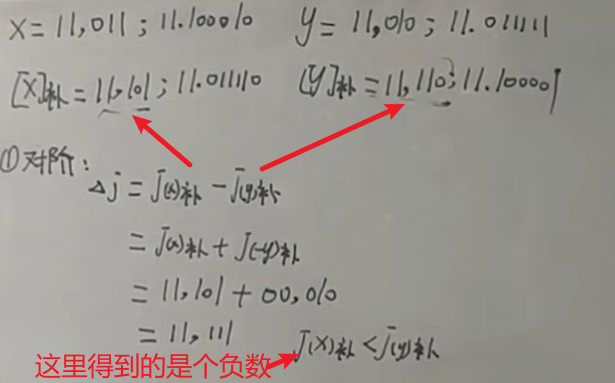 x = 11,011 ; 11.100010 y = 11,010 ; 11.011111
[x]补 = 11,101 ; 11.011110 [y]补 = 11,110; 11.100001
①对阶:
△j = j(x)补 - j(y)补
= j(x)补 + j(-y)补
= 11,101 + 00,010
= 11,111 j(x)补 < j(y)补
这里得到的是个负数